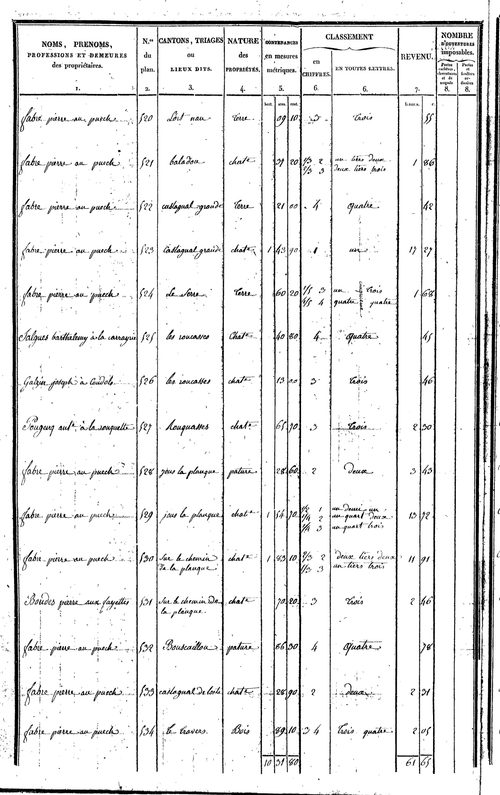 NOMS, PRENOMS,
PROFESSIONS ET DEMEURES
des propriétaires.
N.os
du
plan.
CANTONS, TRIAGES
ou
LIEUX DITS.
NATURE
des
PROPRIÉTÉS.
CONTENANCES
en mesures
métriques.
CLASSEMENT
en
CHIFFRES.
EN TOUTES LETTRES.
REVENU.
NOMBRE
D'OUVERTURES
imposables.
1. 2. 3. 4. 5. 6. 6. 7. 8. 8.
fabre pierre au puech 520 terre 09 10 3 trois 55
fabre pierre au puech 521 baladou chat.e 31 20 1/3 2 un tiers deux 1 86
2/3 3 deux tiers trois
fabre pierre au puech 522 castagnal grande terre 21 00 4 quatre 42
fabre pierre au puech 523 castagnal grande chat.e 1 43 90 1 un 17 27
fabre pierre au puech 524 le serre terre 60 20 1/5 3 un trois 1 68
4/5 4 quatre quatre
Salgues barthelemy à la carrayrie 525 les roucasses chat.e 40 80 4 quatre 45
joseph à 526 les roucasses chat.e 13 00 3 trois 46
à la rouquette 527 Rouquasses chat.e 65 70 3 trois 2 30
fabre pierre au puech 528 jous la planque pature 28 60 2 deux 3 43
fabre pierre au puech 529 jous la planque chat.e 1 54 70 1/2 1 un demi un 13 72
1/4 2 un quart deux
1/4 3 un quart trois
fabre pierre au puech 530 sur le chemin chat.e 1 83 10 2/3 2 deux tiers deux 11 91
de la planque 1/3 3 un tiers trois
Boudes pierre aux fayettes 531 sur le chemin de chat.e 70 20 3 trois 2 46
la planque
fabre pierre au puech 532 Bouscaillou pature 86 30 4 quatre 78
fabre pierre au puech 533 castagnal de chat.e 28 90 2 deux 2 31
fabre pierre au puech 534 le travers Bois 89 10 3 4 trois quatre 2 05
10 31 80 61 65